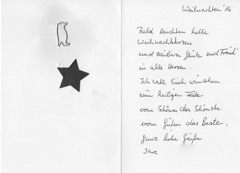 Weihnachten '16
Bald leuchten helle
Weihnachtskerzen
und zaubern Glück und Freud'
in alle Herzen
Ich will Euch wünschen
zum heiligen Feste
vom Schönen das Schönste
vom Guten das Beste.
Ganz liebe Grüße